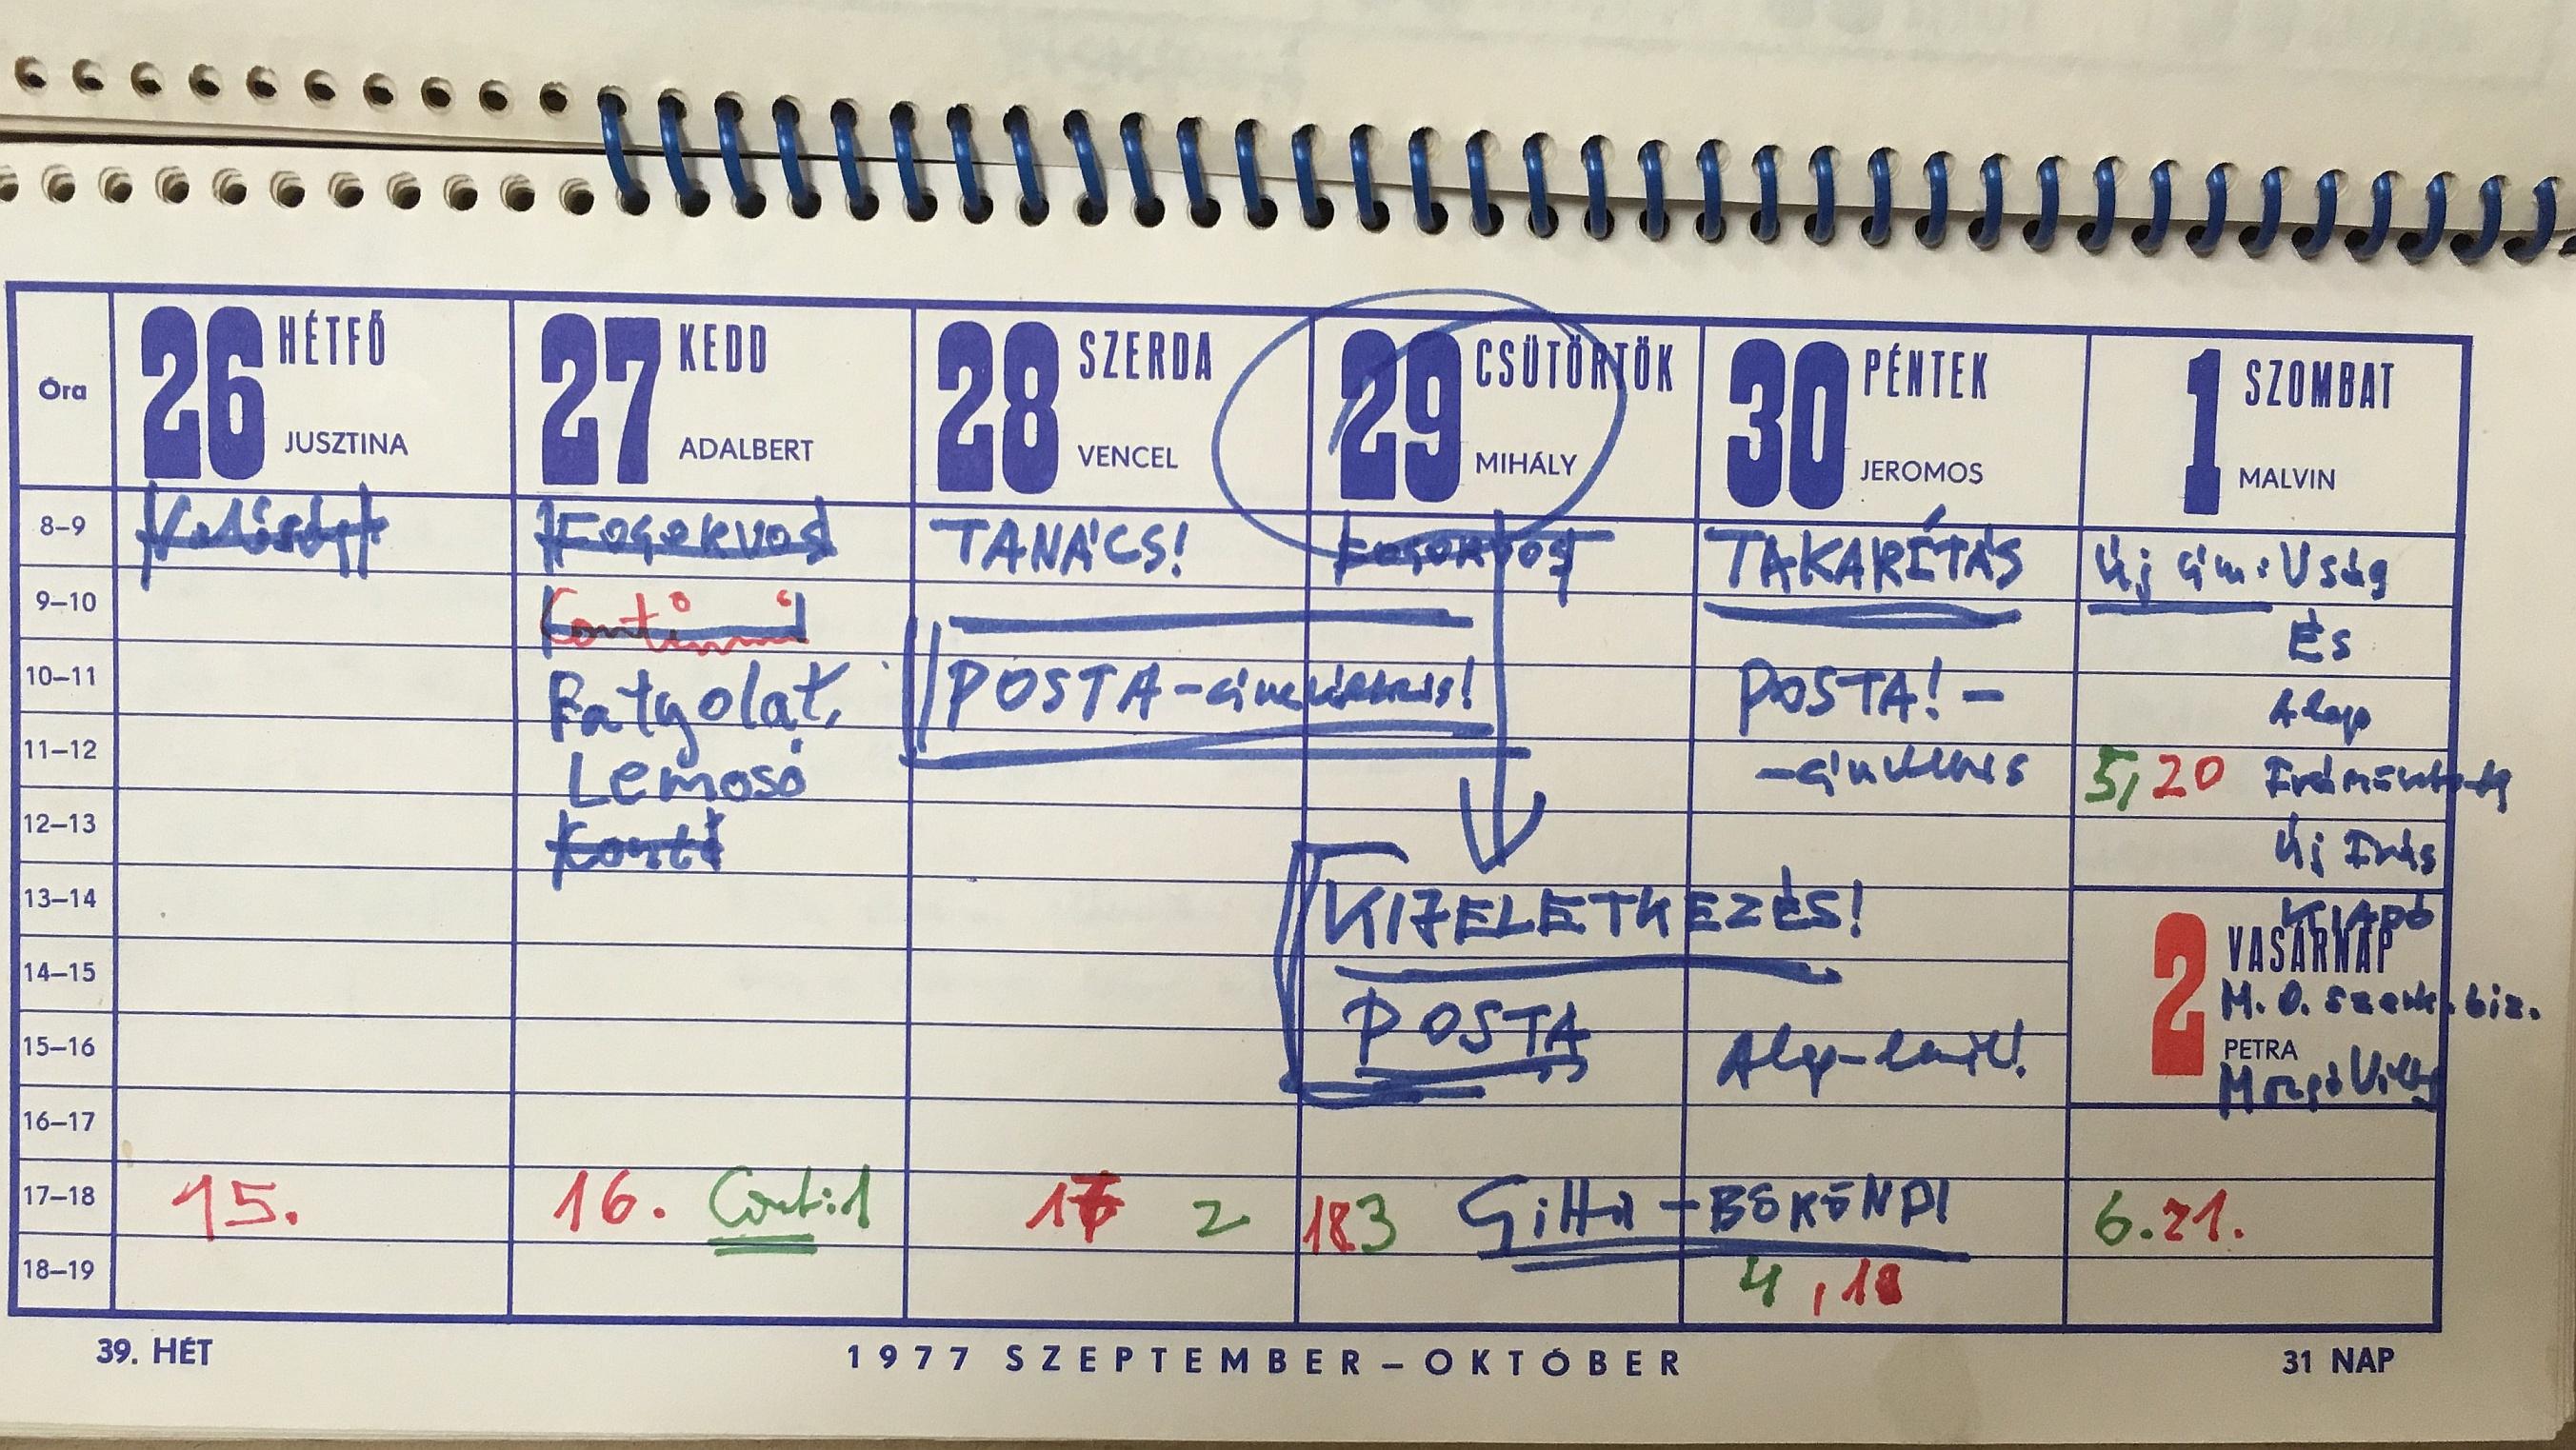 Óra
26 HÉTFŐ
JUSZTINA
27 KEDD
ADALBERT
28 SZERDA
VENCEL
29 CSÜTÖRTÖK
MIHÁLY
30 PÉNTEK
JEROMOS
1 SZOMBAT
MALVIN
8–9
9–10
10–11
11–12
12–13
13–14
14–15
15–16
16–17
17–18
18–19
Valóság
15.
Fogorvos
Patyolat,
Lemosó
16.
TANÁCS!
POSTA-
17 2
Fogorvos
KIJELETKEZÉS!
POSTA
18 3
Gitta - BÖKÖNDI
TAKARÍTÁS
POSTA! -
4, 18
Új cím: Uság
És
Alap
5, 20
Új Írás
Kiadó
2 VASÁRNAP
M. O. szerk. biz.
PETRA
Mozgó Világ
6. 21.
39. HÉT
1977 SZEPTEMBER – OKTÓBER
31 NAP